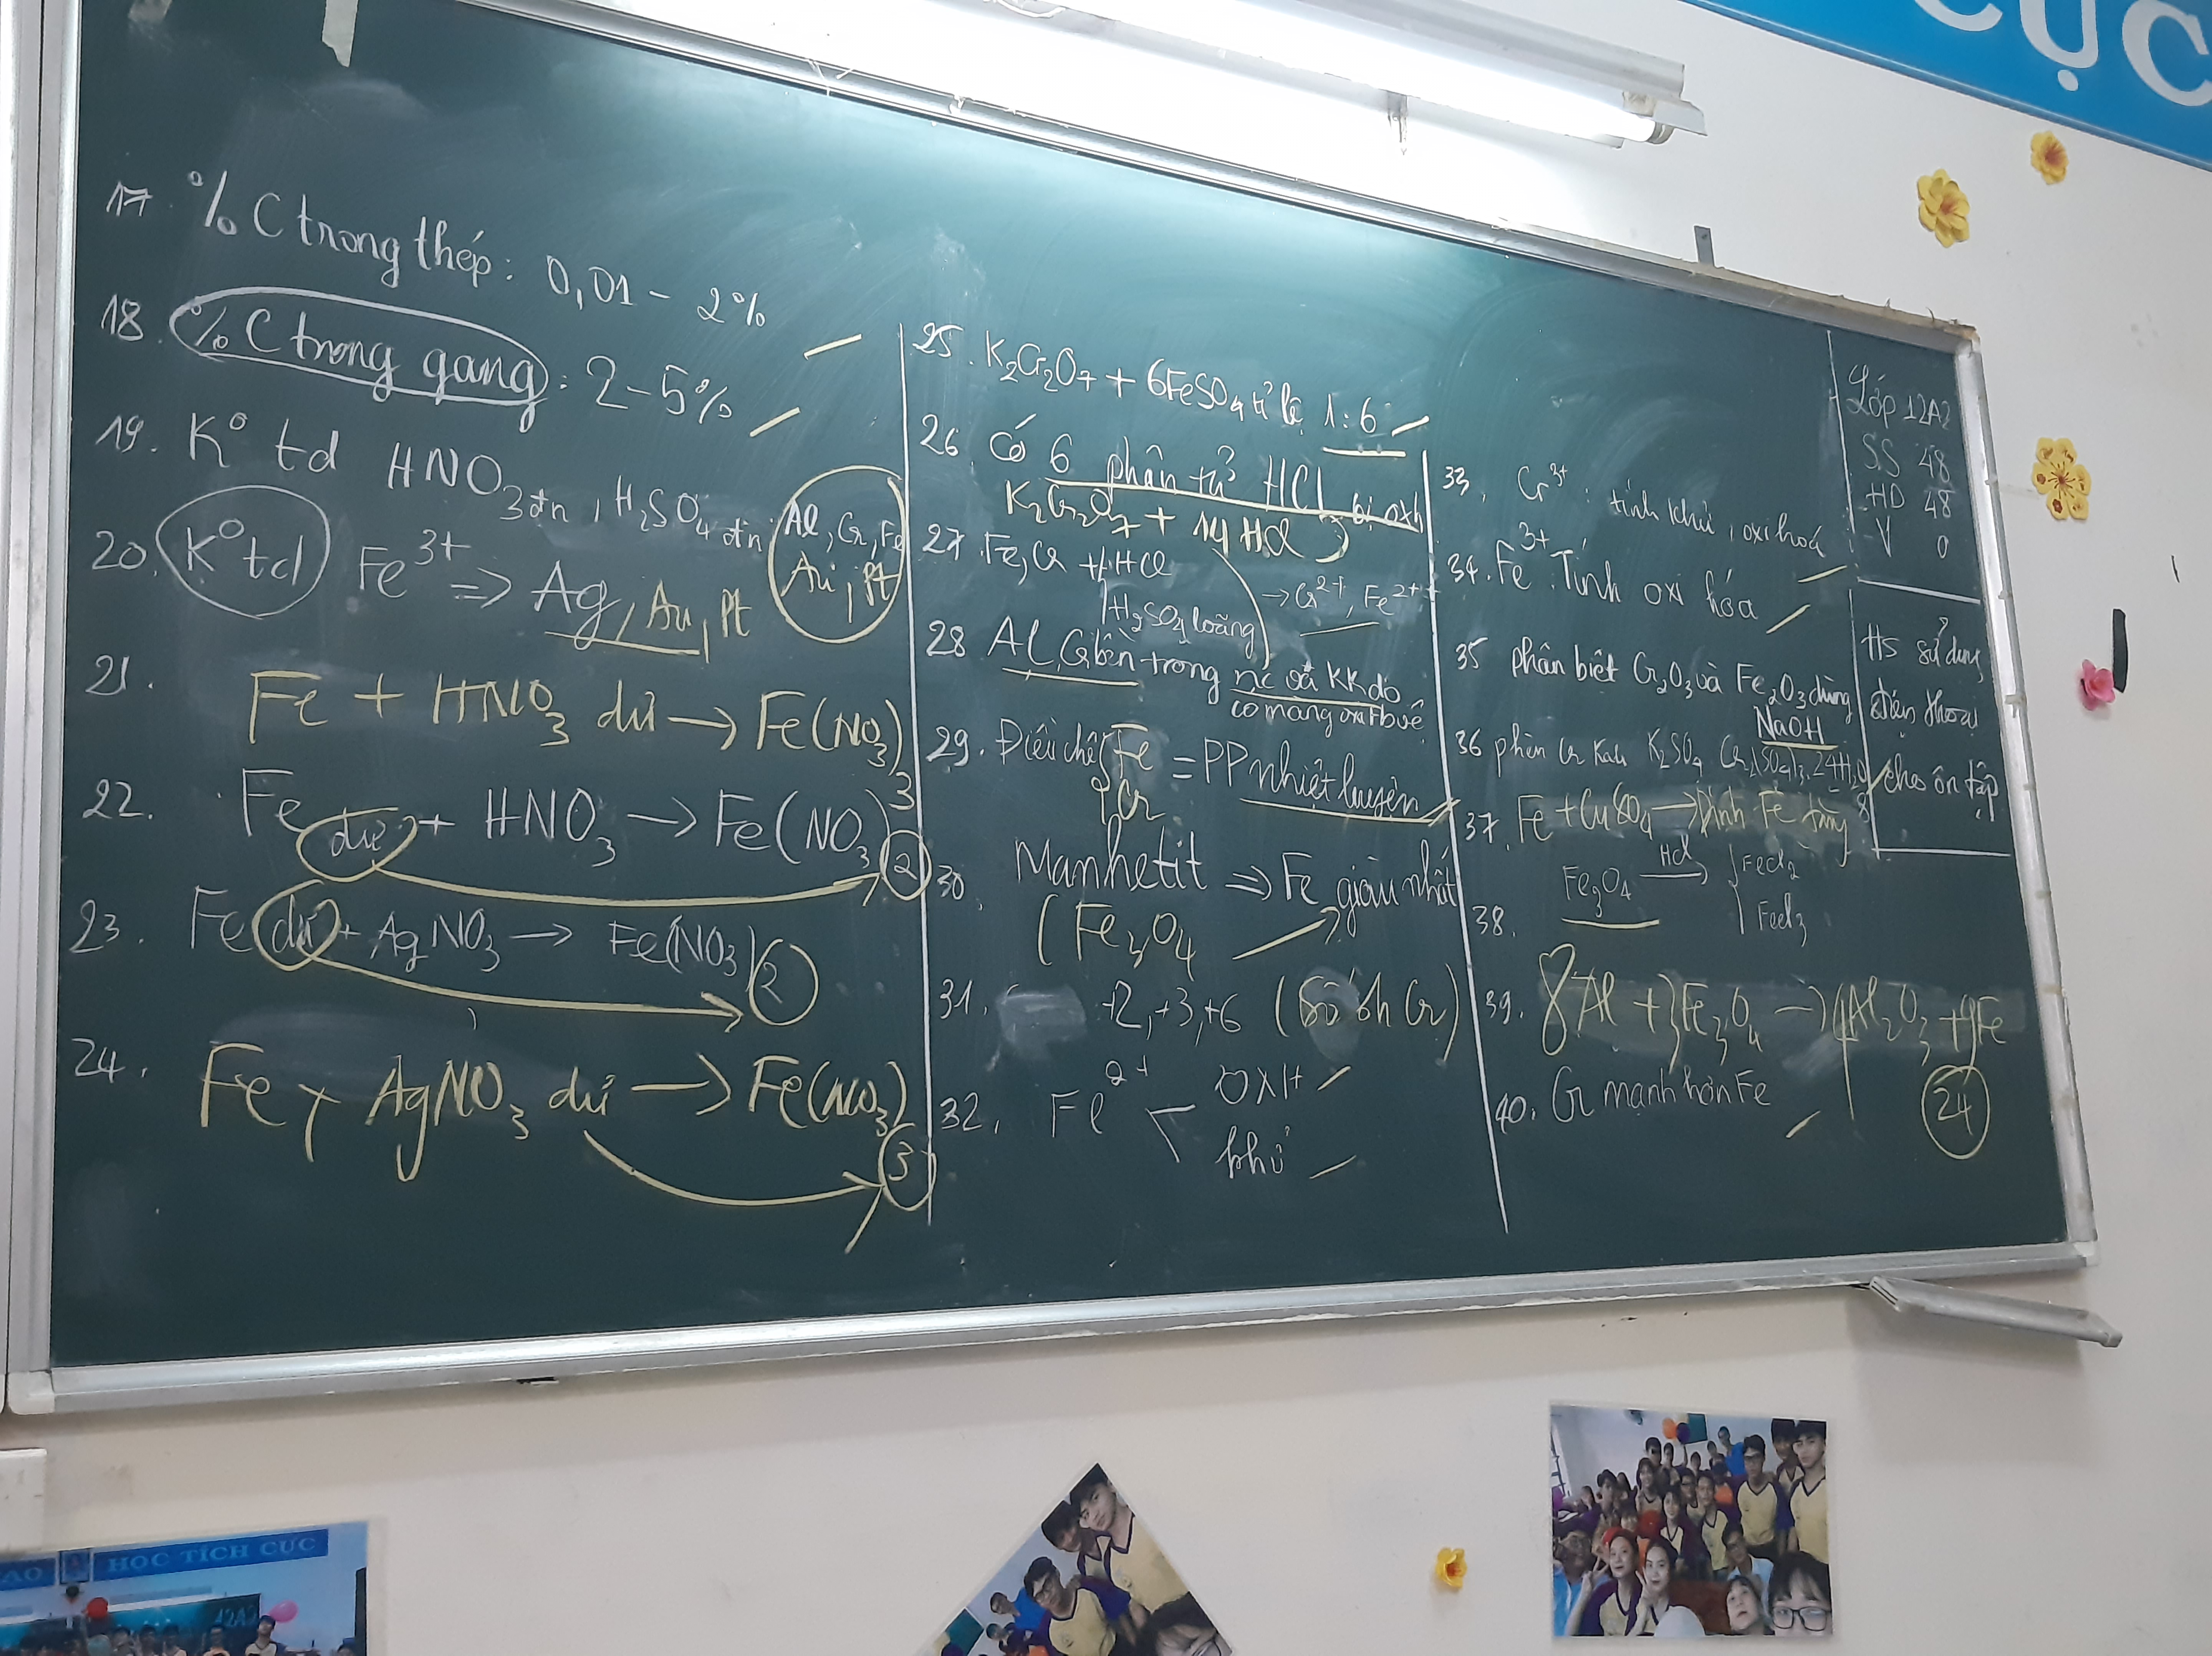 CỤC
17. % C trong thép: 0,01 - 2%
18. % C trong gang : 2-5%
19. K° td HNO3 đn, H2SO4 đn Al, Cr, Fe
Au, Pt
20. K° td Fe3+ => Ag, Au, Pt
21. Fe + HNO3 dư → Fe(NO3)3
22. Fe dư + HNO3 → Fe(NO3)2
23. Fe dư + AgNO3 → Fe(NO3)2
24. Fe + AgNO3 dư → Fe(NO3)3
25. K2Cr2O7 + 6FeSO4 tỉ lệ 1:6
26. Có 6 phân tử HCl bị oxh
K2Cr2O7 + 14HCl
27. Fe, Cr + HCl
H2SO4 loãng → Cr2+, Fe2+
28 Al, Cr bền trong nc và KK do
có màng oxit bvệ
29. Điều chế Fe = PP nhiệt luyện
Cr
30. Manhetit => Fe giàu nhất
(Fe3O4
31. +2, +3, +6 (Số oh Cr)
32. Fe2+ < OXH
khử
33. Cr3+ : tính khử, oxi hoá
34. Fe3+ : Tính oxi hóa
35 phân biệt Cr2O3 và Fe2O3 dùng
NaOH
36 phèn Cr Kali K2SO4 Cr2(SO4)3.24H2O
37. Fe + CuSO4 → Đinh Fe tăng
38. Fe3O4 HCl → FeCl2
FeCl3
39. 8Al + 3Fe3O4 → 4Al2O3 + 9Fe
24
40. Cr mạnh hơn Fe
Lớp 12A2
SS 48
HD 48
V 0
HS sử dụng
điện thoại
cho ôn tập
HỌC TÍCH CỰC
12A2